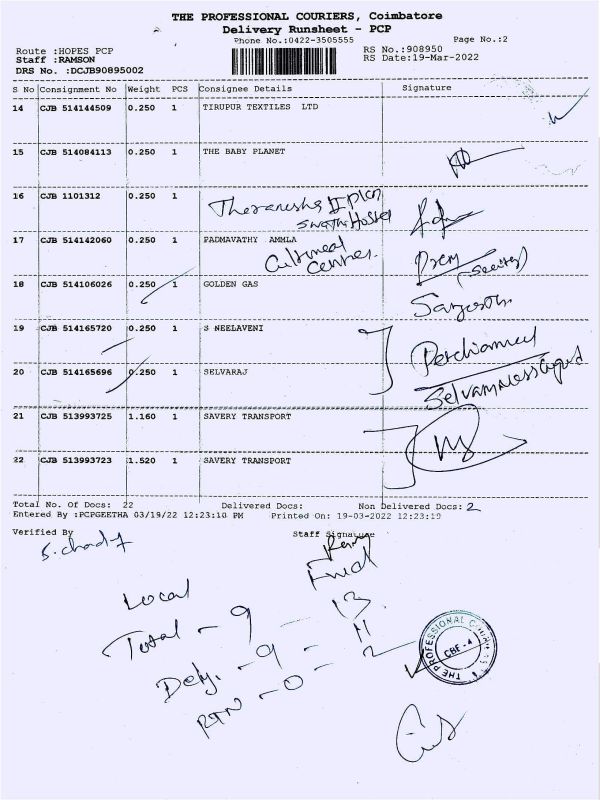 THE PROFESSIONAL COURIERS, Coimbatore
Delivery Runsheet - PCP
Phone No.:0422-3505555 Page No.:2
Route :HOPES PCP RS No.:908950
Staff :RAMSON RS Date:19-Mar-2022
DRS No. :DCJB90895002
S No Consignment No Weight PCS Consignee Details Signature
14 CJB 514144509 0.250 1 TIRUPUR TEXTILES LTD
15 CJB 514084113 0.250 1 THE BABY PLANET
16 CJB 1101312 0.250 1
Swathi Hostel
17 CJB 514142060 0.250 1 PADMAVATHY AMMLA
Cultureal
Centres. Prem
18 CJB 514106026 0.250 1 GOLDEN GAS
19 CJB 514165720 0.250 1 S NEELAVENI
20 CJB 514165696 0.250 1 SELVARAJ
21 CJB 513993725 1.160 1 SAVERY TRANSPORT
22 CJB 513993723 1.520 1 SAVERY TRANSPORT
Total No. Of Docs: 22 Delivered Docs: Non Delivered Docs: 2
Entered By :PCPGEETHA 03/19/22 12:23:10 PM Printed On: 19-03-2022 12:23:19
Verified By Staff Signature
Local
Total - 9 - 13
Dely. - 9 - 11
RTN - 0 - 2
THE PROFESSIONAL COURIERS
CBE - 4